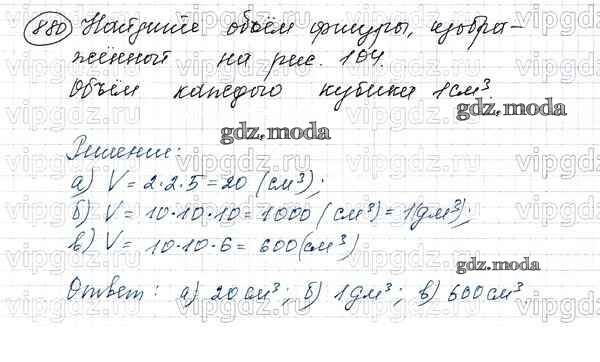 880 Найдите объём фигуры, изобра-
жённой на рис. 104.
Объём каждого кубика 1 см³.
gdz.moda
gdz.moda
Решение:
а) V = 2·2·5 = 20 (см³);
б) V = 10·10·10 = 1000 (см³) = 1(дм³);
в) V = 10·10·6 = 600(см³)
gdz.moda
Ответ: а) 20 см³; б) 1дм³; в) 600см³.